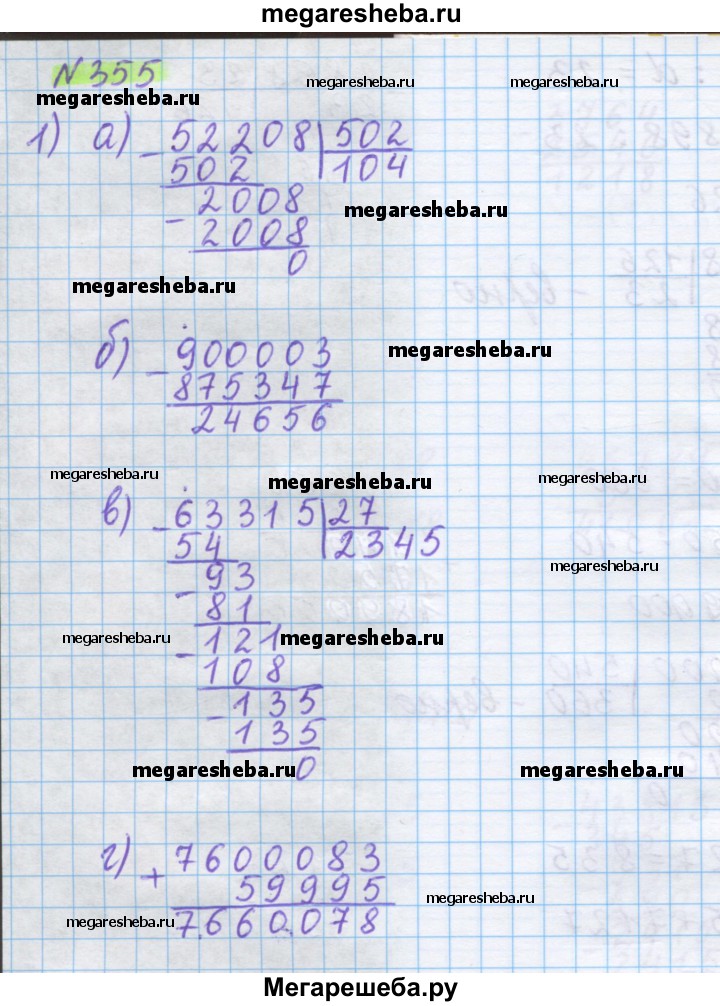 megaresheba.ru
N 355
megaresheba.ru megaresheba.ru megaresheba.ru
1) а) - 52208 | 502
502 | 104
- 2008
megaresheba.ru
2008
0
megaresheba.ru
б) - 900003
megaresheba.ru
875347
24656
megaresheba.ru megaresheba.ru megaresheba.ru
в) - 63315 | 27
54 | 2345
- 93
megaresheba.ru
81
- 121
megaresheba.ru megaresheba.ru
108
- 135
135
0
megaresheba.ru megaresheba.ru
г) + 7600083
59995
megaresheba.ru
7.660.078
megaresheba.ru megaresheba.ru
Мегарешеба.ру